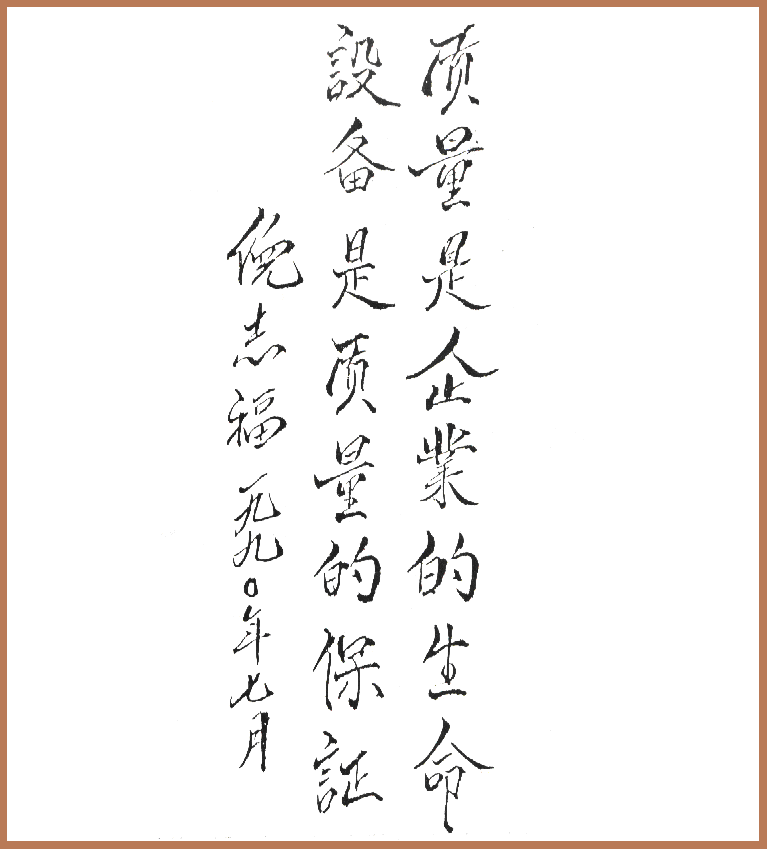 质量是企業的生命
設备是质量的保証
倪志福 一九九〇年七月